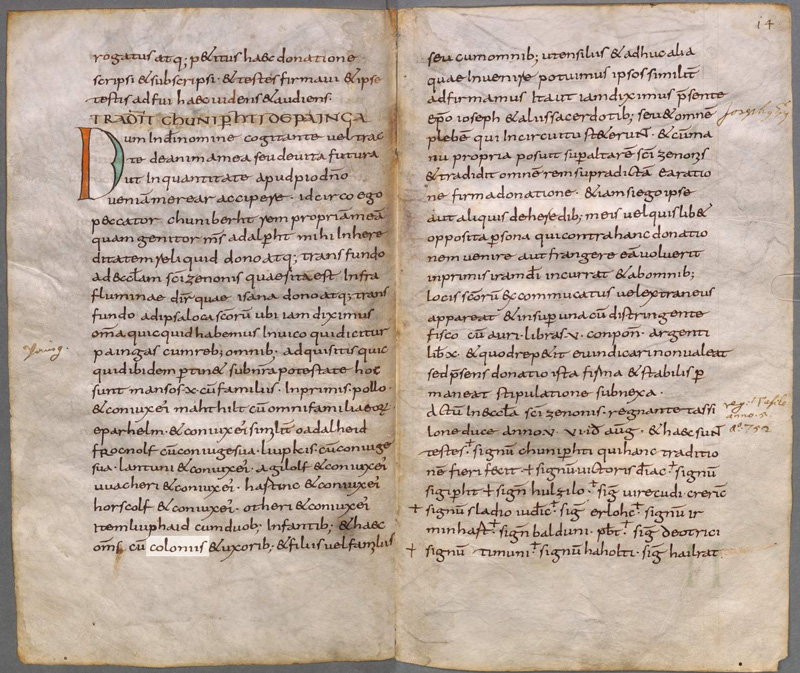 rogatus atq; petitus haec donatione
scripsi & subscripsi · & testes firmavi & ipse
testis adfui haec videns & audiens.
TRADIT CHUNIPHTI DE PAINGA
Dum In dī nomine cogitante vel trac
te de anima mea seu de vita futura
ut In quantitate apud pio dnō
veniam erear accipere · id circo ego
peccator chuniberht rem propriā meā
quam genitor ms adalpht mihi In here
ditatem reliquid dono atq; transfundo
ad eccłam sci zenonis quaesita est Infra
fluminae dir quae isana dono atq; trans
fundo ad ipsa loca scorū ubi iam diximus
oma quicquid habemus In vico qui dicitur
paingas cum reb; omnib; adquisitis quic
quid ibidem ptin& subnra potestate hoc
sunt mansos · x · cū familiis · Inprimis · pollo ·
& coniux ei mahthilt cū omni familia eor
eparhelm · & coniux ei similit oadalheid
frocnolf cū coniuge sua · liupkis · cū coniuge
sua · lantuni & coniux ei · agilolf & coniux ei
vvacheri & coniux ei · hastinc & coniux ei
horscolf & coniux ei · otheri & coniux ei
Item liuphaid cum duob; Infantib; & haec
oms cū coloniis & uxorib; & filiis vel famulis
14
seu cum omnib; utensiliis & adhuc alia
quae Invenire potuimus ipsos similit
adfirmamus Ita ut iam diximus psente
epo ioseph & aliis sacerdotib; seu & omne
plebem qui In circuitu st & erunt · & cū na
nu propria posui supaltare sci zenonis
& tradidit omne rem supradictā ea ratio
ne firma donatione · & iam si ego ipse
aut aliquis de heredib; meis vel quislib&
opposita psona qui contra hanc donatio
nem venire aut frangere eā voluerit
inprimis iram di incurrat & ab omnib;
locis scorū excommucatus vel extraneus
appareat & insup una cū distringente
fisco cū auri · libras · v · conpon · argenti
lib · x · & quod rep&it evindicari non valeat
sed psens donatio ista firma & stabilis p
maneat stipulatione subnexa ·
Actū In eccla sci zenonis · regnante tassi
lone duce anno · v · viid aug · & haec sunt
testes · signū chuniphti qui hanc traditio
ne fieri fecit + signū victoris diac · signū
sigipht + sign hulzilo · sig virecudi cleric
+ signū sladio iudic · sig erlohc · signū ir
minhast · sign balduni · pbt · sig deotrici
+ signū timuni · signū haholti · sig hailrat